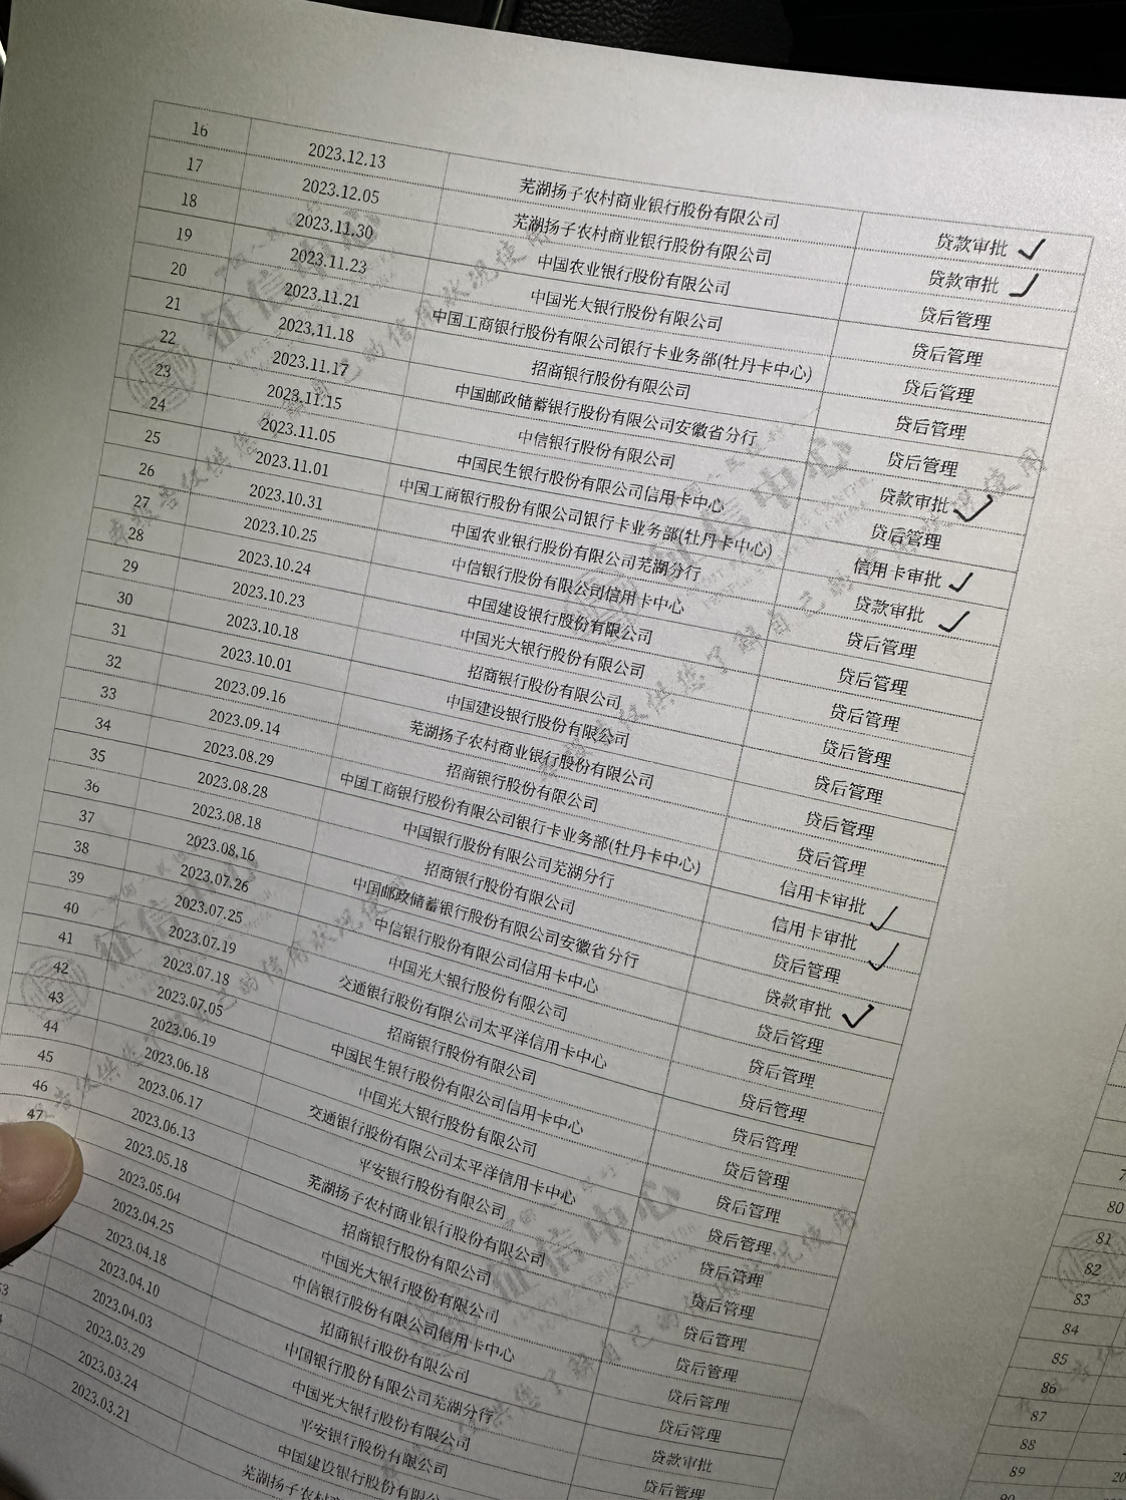 16 2023.12.13 芜湖扬子农村商业银行股份有限公司 贷款审批 ✓
17 2023.12.05 芜湖扬子农村商业银行股份有限公司 贷款审批 ✓
18 2023.11.30 中国农业银行股份有限公司 贷后管理
19 2023.11.23 中国光大银行股份有限公司 贷后管理
20 2023.11.21 中国工商银行股份有限公司银行卡业务部(牡丹卡中心) 贷后管理
21 2023.11.18 招商银行股份有限公司 贷后管理
22 2023.11.17 中国邮政储蓄银行股份有限公司安徽省分行 贷后管理
23 2023.11.15 中信银行股份有限公司 贷款审批 ✓
24 2023.11.05 中国民生银行股份有限公司信用卡中心 贷后管理
25 2023.11.01 中国工商银行股份有限公司银行卡业务部(牡丹卡中心) 信用卡审批 ✓
26 2023.10.31 中国农业银行股份有限公司芜湖分行 贷款审批 ✓
27 2023.10.25 中信银行股份有限公司信用卡中心 贷后管理
28 2023.10.24 中国建设银行股份有限公司 贷后管理
29 2023.10.23 中国光大银行股份有限公司 贷后管理
30 2023.10.18 招商银行股份有限公司 贷后管理
31 2023.10.01 中国建设银行股份有限公司 贷后管理
32 2023.09.16 芜湖扬子农村商业银行股份有限公司 贷后管理
33 2023.09.14 招商银行股份有限公司 贷后管理
34 2023.08.29 中国工商银行股份有限公司银行卡业务部(牡丹卡中心) 信用卡审批 ✓
35 2023.08.28 中国银行股份有限公司芜湖分行 信用卡审批 ✓
36 2023.08.18 招商银行股份有限公司 贷后管理
37 2023.08.16 中国邮政储蓄银行股份有限公司安徽省分行 贷款审批 ✓
38 2023.07.26 中信银行股份有限公司信用卡中心 贷后管理
39 2023.07.25 中国光大银行股份有限公司 贷后管理
40 2023.07.19 交通银行股份有限公司太平洋信用卡中心 贷后管理
41 2023.07.18 招商银行股份有限公司 贷后管理
42 2023.07.05 中国民生银行股份有限公司信用卡中心 贷后管理
43 2023.06.19 中国光大银行股份有限公司 贷后管理
44 2023.06.18 交通银行股份有限公司太平洋信用卡中心 贷后管理
45 2023.06.17 平安银行股份有限公司 贷后管理
46 2023.06.13 芜湖扬子农村商业银行股份有限公司 贷后管理
47 2023.05.18 招商银行股份有限公司 贷后管理
2023.05.04 中国光大银行股份有限公司 贷后管理
2023.04.25 中信银行股份有限公司信用卡中心 贷后管理
2023.04.18 招商银行股份有限公司 贷后管理
2023.04.10 中国银行股份有限公司芜湖分行 贷款审批
2023.04.03 中国光大银行股份有限公司 贷后管理
2023.03.29 平安银行股份有限公司
2023.03.24 中国建设银行股份有限公
2023.03.21 芜湖扬子农村
征信中心
征信中心
征信中心
征信中心
80
81
82
83
84
85
86
87
88
89